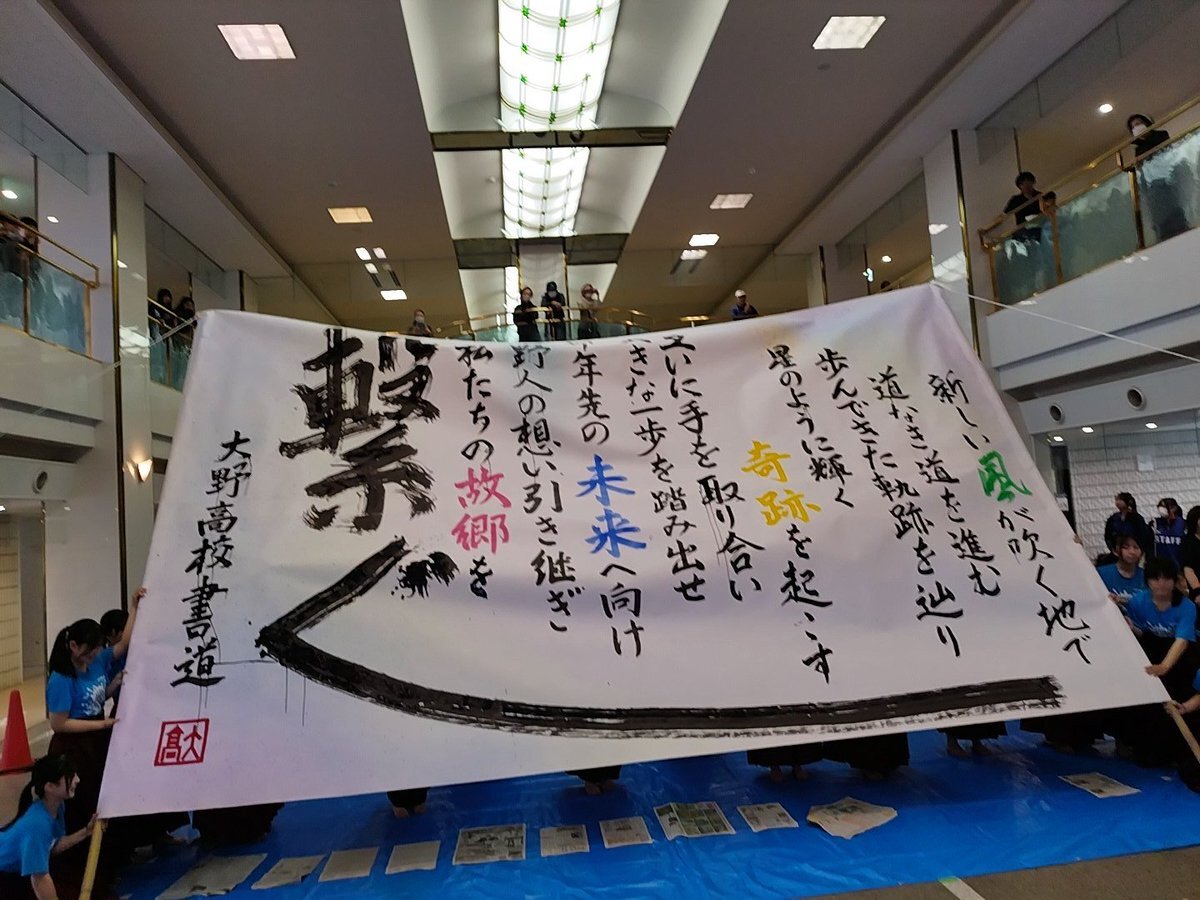 新しい風が吹く地で
道なき道を進む
歩んできた軌跡を辿り
星のように輝く
奇跡を起こす
互いに手を取り合い
きな一歩を踏み出せ
年先の未来へ向け
野人の想い引き継ぎ
私たちの故郷を
繋ぐ
大野高校書道
大高
STAFF